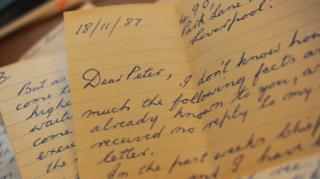 18/11/87
Park Lane
Liverpool.
Dear Peter,
I don't know how
much the following facts are
already known to you, a
received no reply to my
letter.
In the past weeks
and I have
3
But as
come to
highe
waite
come
excu
the